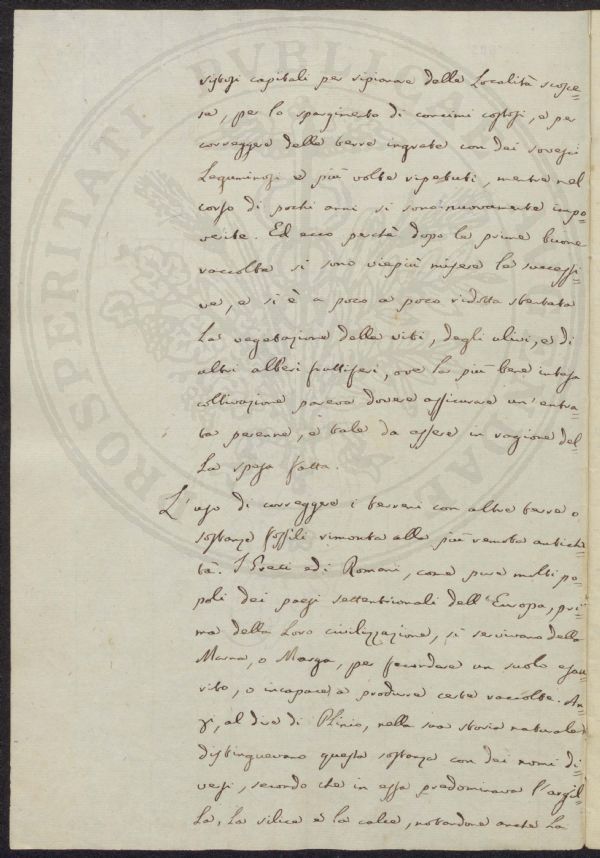 vistosi capitali per ripianare delle Località scosce=
se, per lo spargimento di concimi costosi, e per
correggere delle terre ingrate con dei sovesci
Leguminosi e più volte ripetuti, mentre nel
corso di pochi anni si sono nuovamente impo=
verite. Ed ecco perchè dopo le prime buone
raccolte si sono viepiù misere le successi=
ve, e si è a poco a poco ridotta stentata
La vegetazione delle viti, degli ulivi, e di
altri alberi fruttiferi, ove la più bene intesa
coltivazione pareva dovere assicurare un'entra=
ta perenne, e tale da essere in ragione del=
La spesa fatta.
L'uso di correggere i terreni con altre terre o
sostanze fossili rimonta alla più remota antichi=
tà. I Greci ed i Romani, come pure molti po=
poli dei paesi settentrionali dell'Europa, pri=
ma della Loro civilizzazione, si servivano della
Marna, o Marga, per fecondare un suolo esau=
rito, o incapace a produrre certe raccolte. An=
zi, al dire di Plinio, nella sua storia naturale
distinguevano questa sostanza con dei nomi di=
versi, secondo che in essa predominava l'argil=
La, La silice e la calce, notandone anche La
PROSPERITATI PVBLICAE